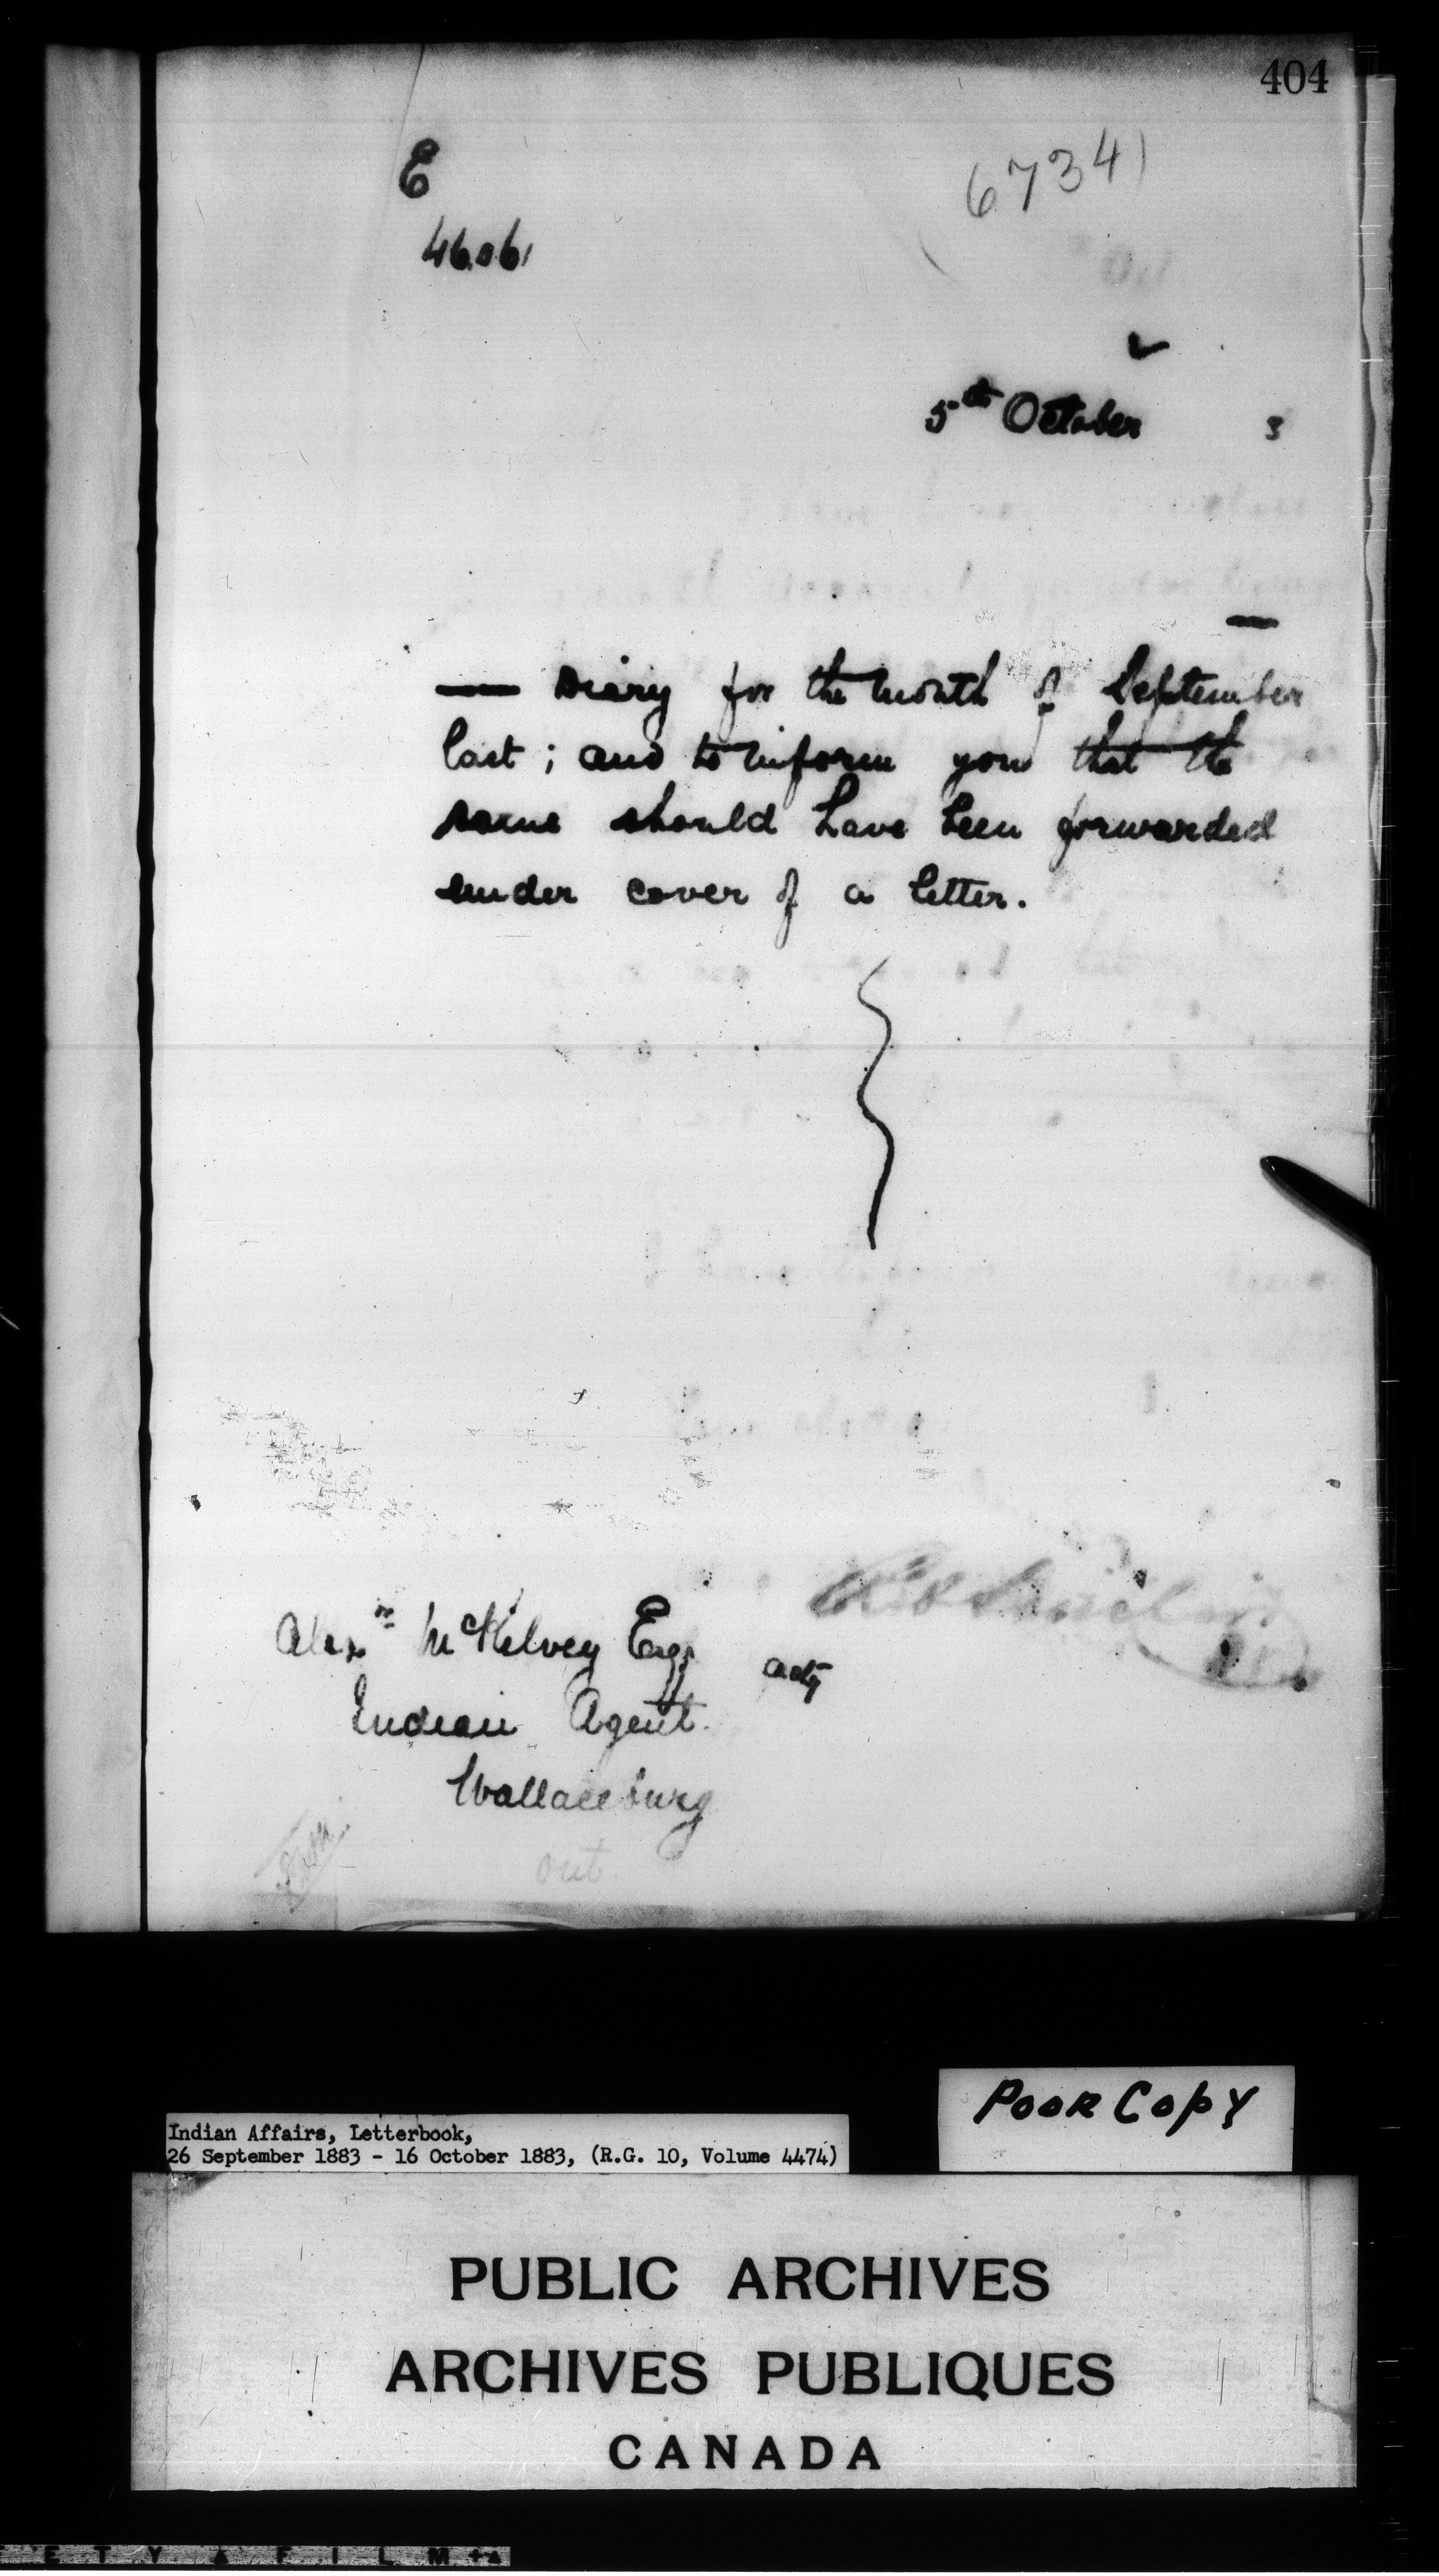 404
E
67341
46061
5th October 3
— Diary for the month of September
last; and to inform you that the
same should have been forwarded
under cover of a letter.
Alexr McKelvey Esq
Indian Agent.
actg
Wallaceburg
out
Poor Copy
Indian Affairs, Letterbook,
26 September 1883 - 16 October 1883, (R.G. 10, Volume 4474)
PUBLIC ARCHIVES
ARCHIVES PUBLIQUES
CANADA